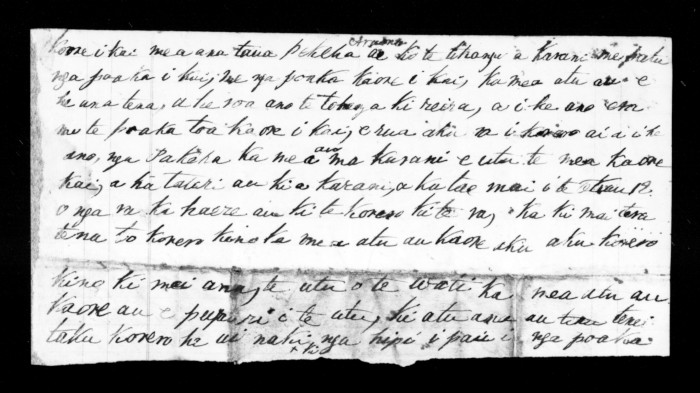 kaore i kai mea ana taua Pakeha ae ko te tikanga a Karani me patu
nga poaka i kai, me nga poaka kaore i kai, ka mea atu au e
he ana tena, a he roa ano te tohe ki reira, a i he ano
mo te poaka toa kaore i kai, e rua aku ra i korero ai a i he
ano, nga Pakeha ka mea au ma Karani e utu te mea kaore
kai, a ka tatari au ki a Karani, a ka tae mai i te 12
o nga ra ka haere au ki te korero ki te ra, ka ki mai tera
tena to korero kino ka mea atu au kaore aku korero
kino ki mai ana, te utu o te wati ka mea atu au
kaore au e pupuri i te utu, ki atu ana au tenei
taku korero he ui naku ki nga hipi i pau i nga poaka